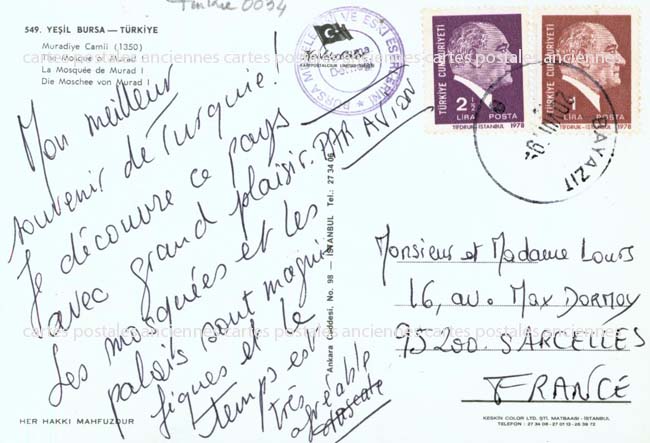 Turquie 0034
549. YEŞİL BURSA — TÜRKİYE
Muradiye Camii (1350)
The Mosque of Murad I
La Mosquée de Murad I
Die Moschee von Murad I
BURSA MÜZELERİNİ VE ESKİ ESERLERİNİ
Derneği
TÜRKİYE CUMHURİYETİ
2 1/2
LİRA POSTA
TİFDRUK-İSTANBUL 1978
TÜRKİYE CUMHURİYETİ
1
LİRA POSTA
TİFDRUK-İSTANBUL 1978
BAYAZIT
PAR AVION
Mon meilleur
souvenir de Turquie!
Je découvre ce pays
avec grand plaisir.
Les mosquées et les
palais sont magni
fiques et le
temps est
très
agréable
Monsieur et Madame Lours
16, av. Max DORMOY
95200. SARCELLES
FRANCE
Ankara Caddesi, No. 98 — İSTANBUL Tel.: 27 34 08
HER HAKKI MAHFUZDUR
KESKİN COLOR LTD. ŞTİ. MATBAASI - İSTANBUL
TELEFON : 27 34 08 - 27 01 13 - 26 09 72
cartes postales anciennes cartes postales anciennes cartes postales anciennes
cartes postales anciennes cartes postales anciennes cartes postales anciennes